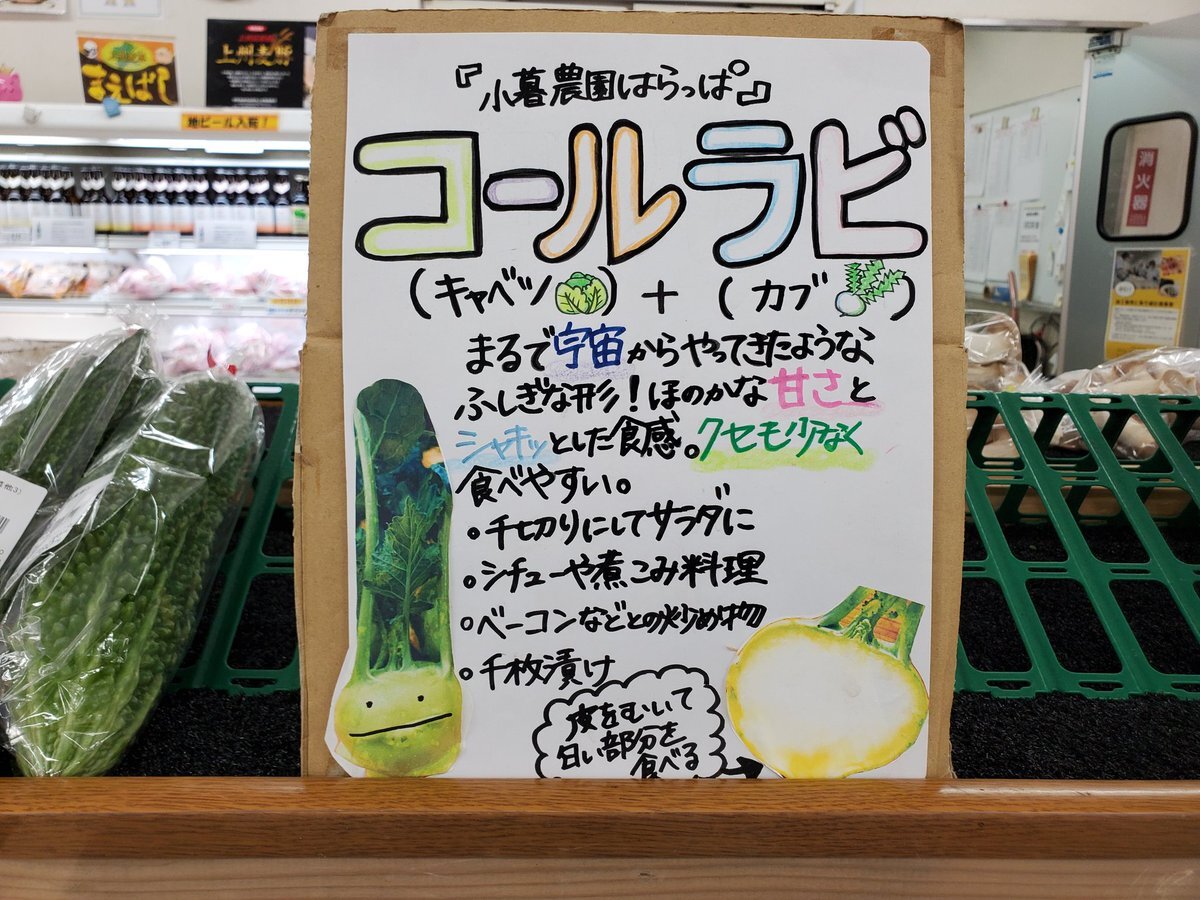 まえばし
上州麦豚
地ビール入荷！
消火器
『小暮農園はらっぱ』
コールラビ
(キャベツ)+(カブ)
まるで宇宙からやってきたような
ふしぎな形！ほのかな甘さと
シャキッとした食感。クセも少なく
食べやすい。
。千切りにしてサラダに
。シチューや煮こみ料理
。ベーコンなどとの炒め物
。千枚漬け
皮をむいて
白い部分を
食べる